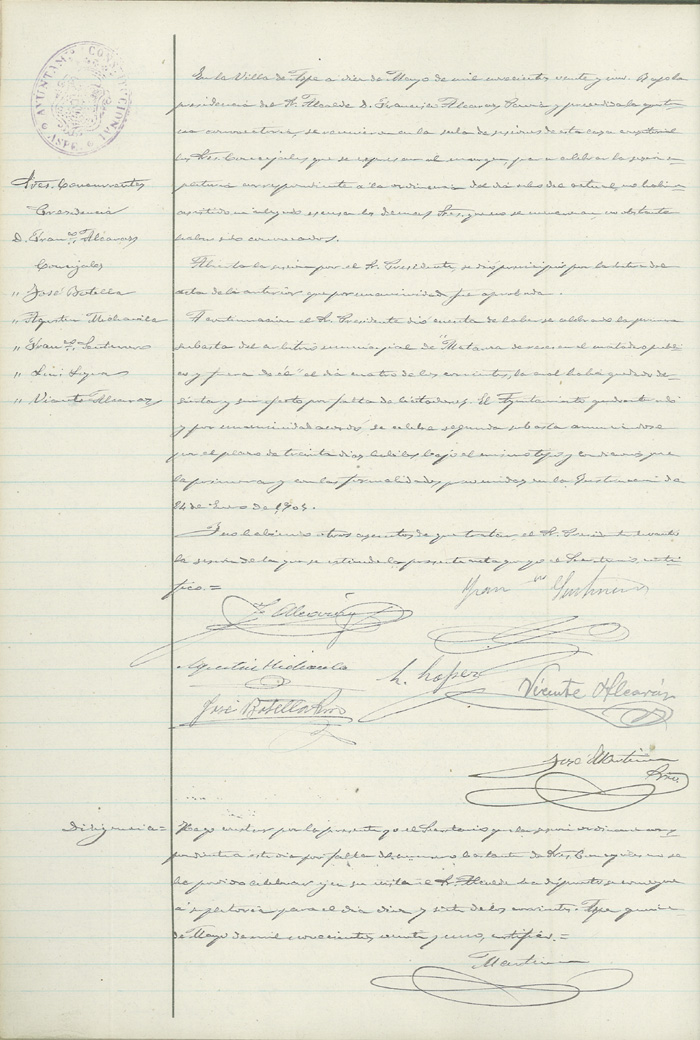 AYUNTAMIENTO CONSTITUCIONAL
ASPE
Sres. Concurrentes
Presidencia
D. Franco. Alcaraz
Concejales
" José Botella
" Agustin Mira
" Franco. Santonero
" Luis Lopez
" Vicente Alcaraz
En la Villa de Aspe a diez de Mayo de mil novecientos veinte y uno. Bajo la
presidencia del Sr. Alcalde D. Francisco Alcaraz y precedida la oportu-
na convocatoria, se reunieron en la sala de sesiones de esta casa capitular
los Sres. Concejales que se expresan al margen, para celebrar la sesion
supletoria correspondiente a la ordinaria del dia ocho del actual, no habien
asistido ni alegado excusa los demas Sres. que no se enumeran, no obstante
haber sido convocados.
Abierta la sesion por el Sr. Presidente, se dió principio por la lectura del
acta de la anterior que por unanimidad fue aprobada.
A continuacion el Sr. Presidente dió cuenta de haberse celebrado la primera
subasta del arbitrio municipal de "Matanza de reses en el matadero publi-
co y fuera de él" el dia cuatro de los corrientes, la cual habia quedado de-
sierta y sin efecto por falta de licitadores. El Ayuntamiento quedó enterado
y por unanimidad acordó, se celebre segunda subasta anunciandose
por el plazo de treinta dias habiles bajo el mismo tipo y condiciones que
la primera y con las formalidades prevenidas en la Instruccion de
24 de Enero de 1905.
Y no habiendo otros asuntos de que tratar el Sr. Presidente levantó
la sesion de la que se extiende la presente acta que yo el Secretario certi-
fico.=
Franco. Santonero
F. Alcaraz
Agustin
L. Lopez
Vicente Alcaraz
José Botella
José Martinez
Srio.
Diligencia=
Hago constar por la presente yo el Secretario que la sesion ordinaria corres-
pondiente a este dia por falta de numero bastante de Sres. Concejales no se
ha podido celebrar y en su vista el Sr. Alcalde ha dispuesto se convoque
a supletoria para el dia diez y siete de los corrientes. Aspe quince
de Mayo de mil novecientos veinte y uno, certifico.=
Martinez